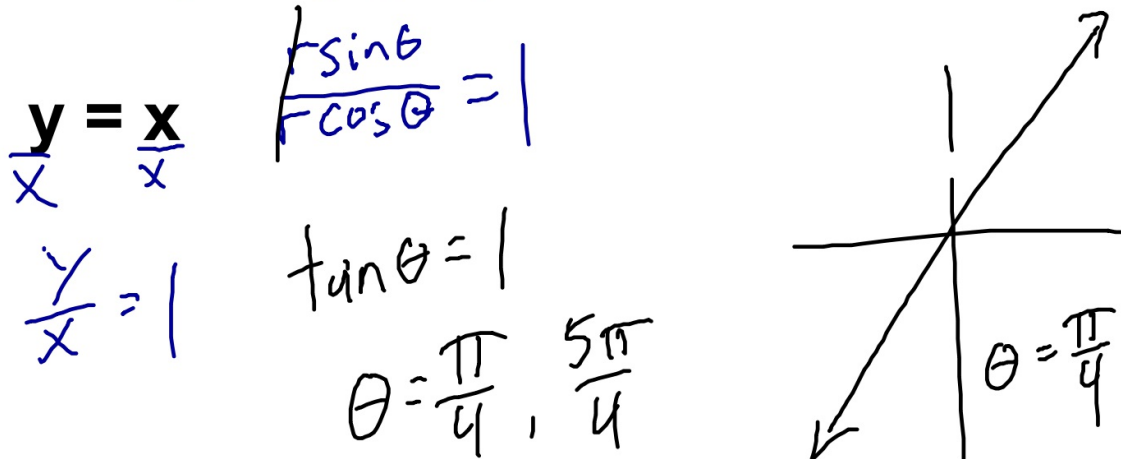 y = x
x x
y/x = 1
r sinθ / r cosθ = 1
tanθ = 1
θ = π/4 , 5π/4
θ = π/4